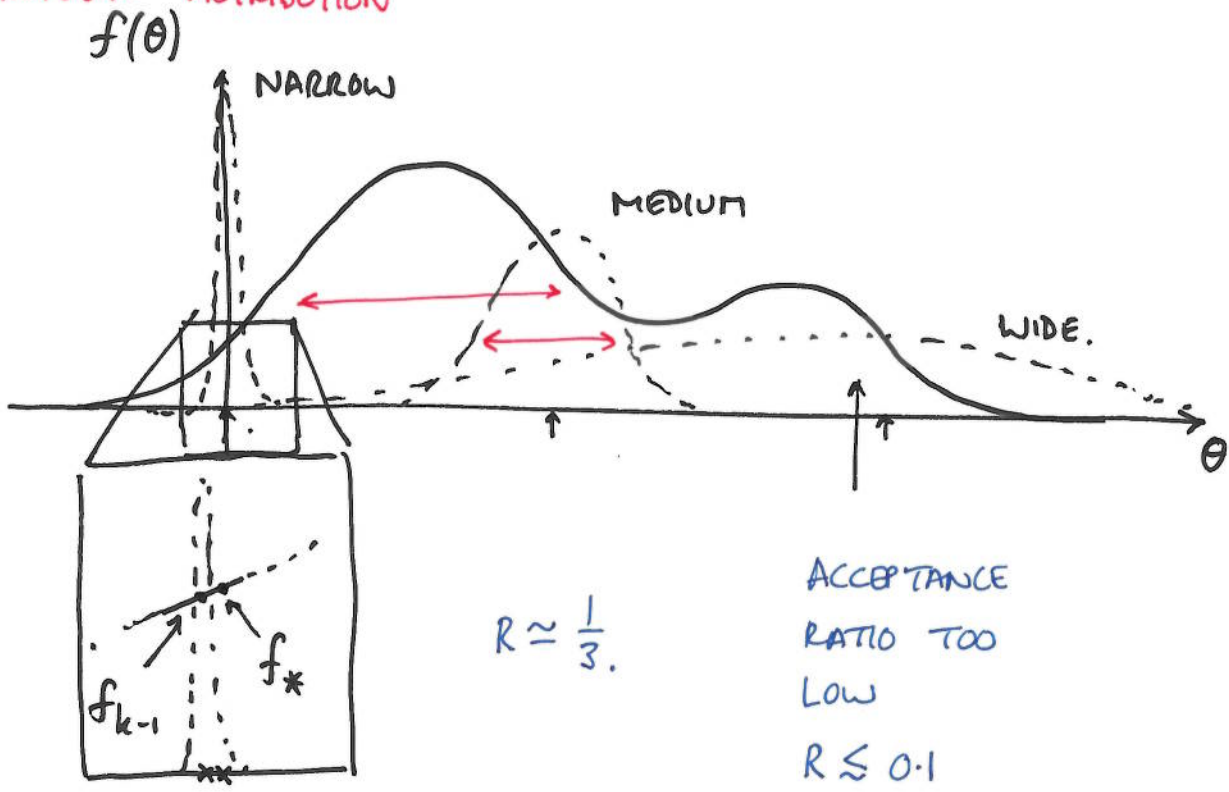 DISTRIBUTION
f(θ)
NARROW
MEDIUM
WIDE.
θ
f_{k-1}
f_*
R ≃ 1/3.
ACCEPTANCE
RATIO TOO
LOW
R ≲ 0.1